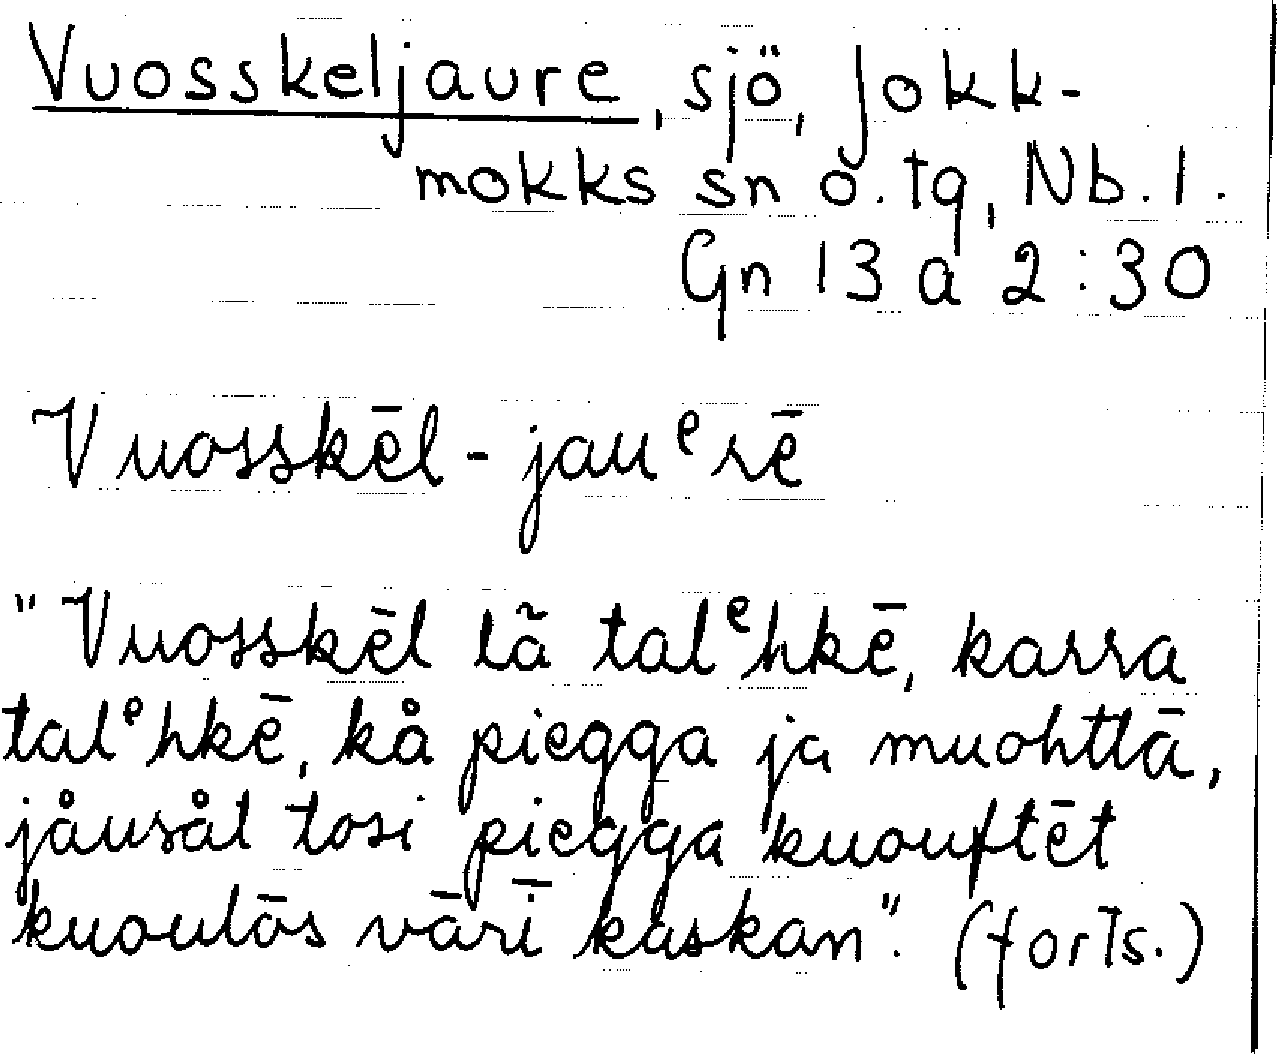 Vuosskeljaure, sjö, Jokk-
mokks sn o. tg, Nb. l.
Gn 13 a 2:30
Vuosskēl-jauᵉrē
"Vuosskēl lã talᵉhkē, karra
talᵉhkē, kå piegga ja muohttā,
jåusål tosi piegga kuouftēt
kuoulās vārī kaskan". (forts.)